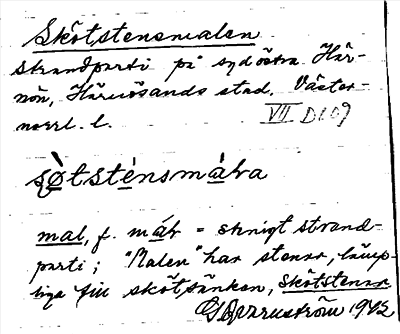 Skötstensmalen
strandparti på sydöstra Här-
nön, Härnösands stad. Väster-
norrl. l.
VII D109
sø̀tsténsmàɫra
mal, f. = stenigt strand-
parti; "Malen" har stenar, lämp-
liga till skötsänken, skötstenar
1942